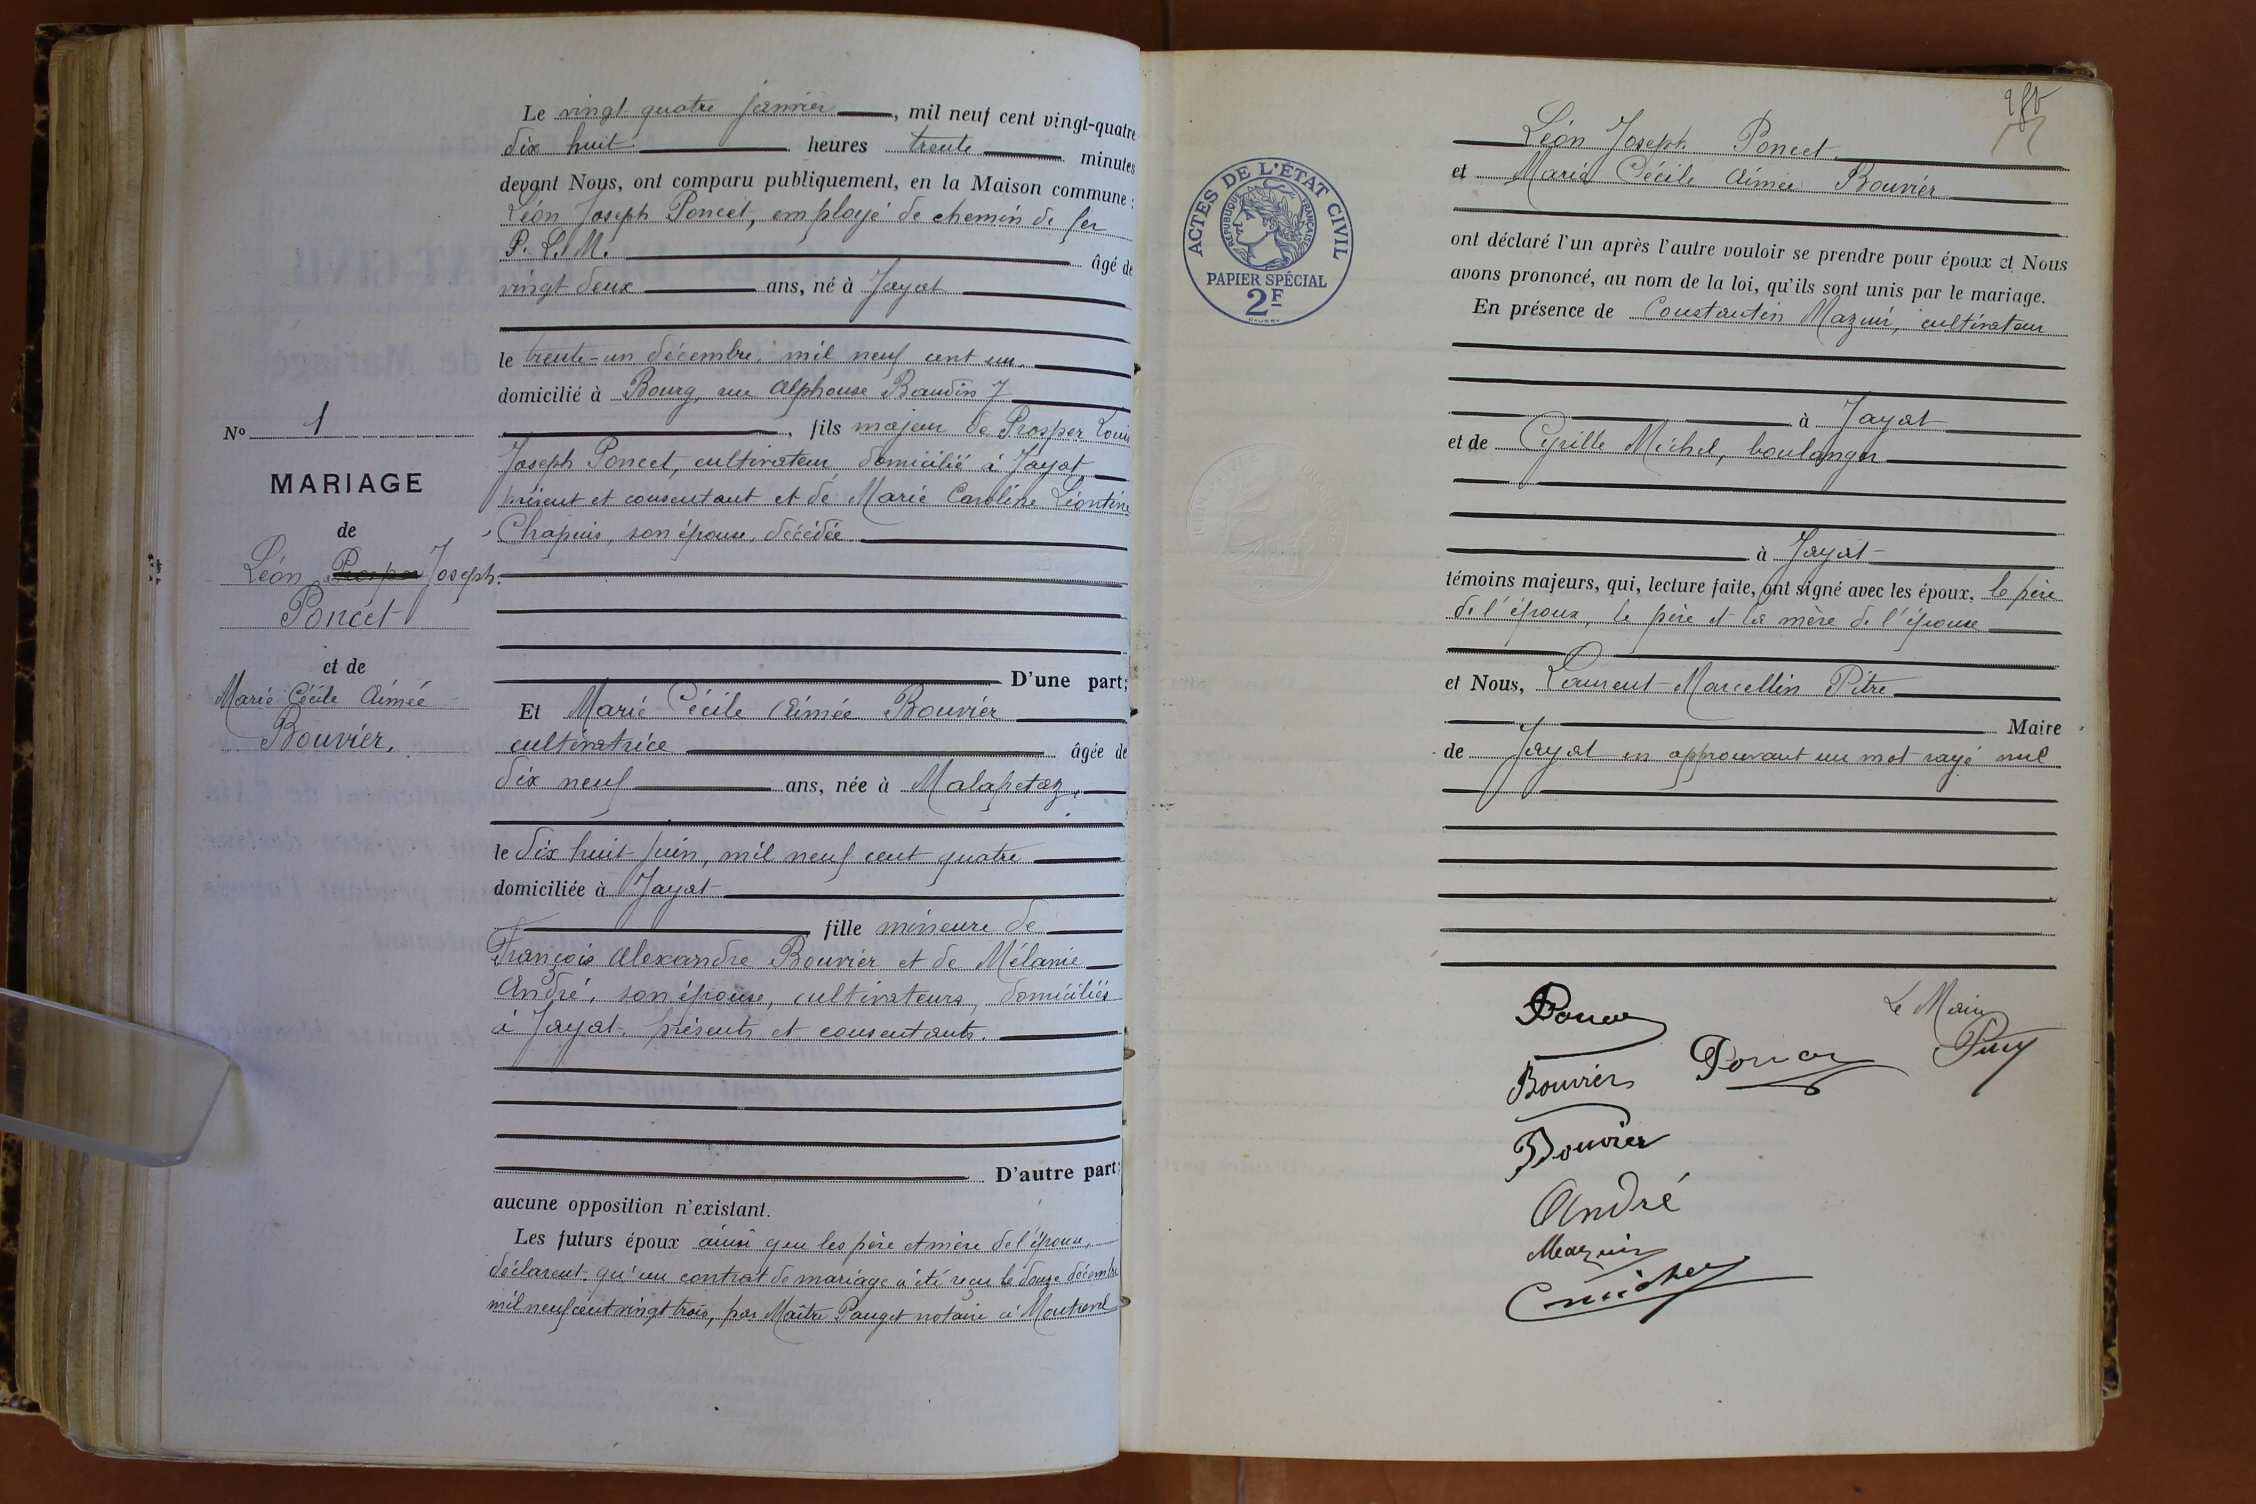 Le vingt quatre janvier, mil neuf cent vingt-quatre
dix huit heures trente minutes
devant Nous, ont comparu publiquement, en la Maison commune :
Léon Joseph Poncet, employé de chemin de fer
P. L. M. âgé de
vingt deux ans, né à Jayat
le trente-un décembre, mil neuf cent un
domicilié à Bourg, rue Alphonse Baudin 7
, fils majeur de Prosper Louis
Joseph Poncet, cultivateur, domicilié à Jayat
présent et consentant et de Marie Caroline Léontine
Chapuis, son épouse, décédée
D'une part;
Et Marie Cécile Aimée Bouvier
cultivatrice âgée de
dix neuf ans, née à Malapetaz,
le dix huit juin, mil neuf cent quatre
domiciliée à Jayat
fille mineure de
François Alexandre Bouvier et de Mélanie
André, son épouse, cultivateurs, domiciliés
à Jayat, présents et consentants.
D'autre part;
aucune opposition n'existant.
Les futurs époux ainsi que les père et mère de l'épouse,
déclarent qu'un contrat de mariage a été reçu le douze décembre
mil neuf cent vingt trois, par Maître Pauget notaire à Montrevel
No 1
MARIAGE
de
Léon Prosper Joseph
Poncet
et de
Marie Cécile Aimée
Bouvier.
ACTES DE L'ÉTAT CIVIL
RÉPUBLIQUE FRANÇAISE
PAPIER SPÉCIAL
2F
Léon Joseph Poncet
et Marie Cécile Aimée Bouvier
ont déclaré l'un après l'autre vouloir se prendre pour époux et Nous
avons prononcé, au nom de la loi, qu'ils sont unis par le mariage.
En présence de Constantin Mazuir, cultivateur
à Jayat
et de Cyrille Michel, boulanger
à Jayat
témoins majeurs, qui, lecture faite, ont signé avec les époux, le père
de l'époux, le père et la mère de l'épouse
et Nous, Laurent Marcellin Pitre
Maire
de Jayat en approuvant un mot rayé nul
Poncet
Le Maire
Poncet
Bouvier
Bouvier
André
Mazuir
C Michel